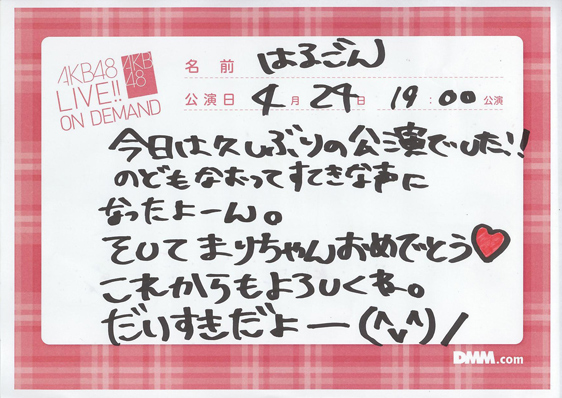 AKB48
LIVE!!
ON DEMAND
AKB
48
名前 はるごん
公演日 4月24日 19:00公演
今日は久しぶりの公演でした!!
のどもなおってすてきな声に
なったよーん。
そしてまりちゃんおめでとう♥
これからもよろしくね。
だいすきだよー(^v^)/
DMM.com